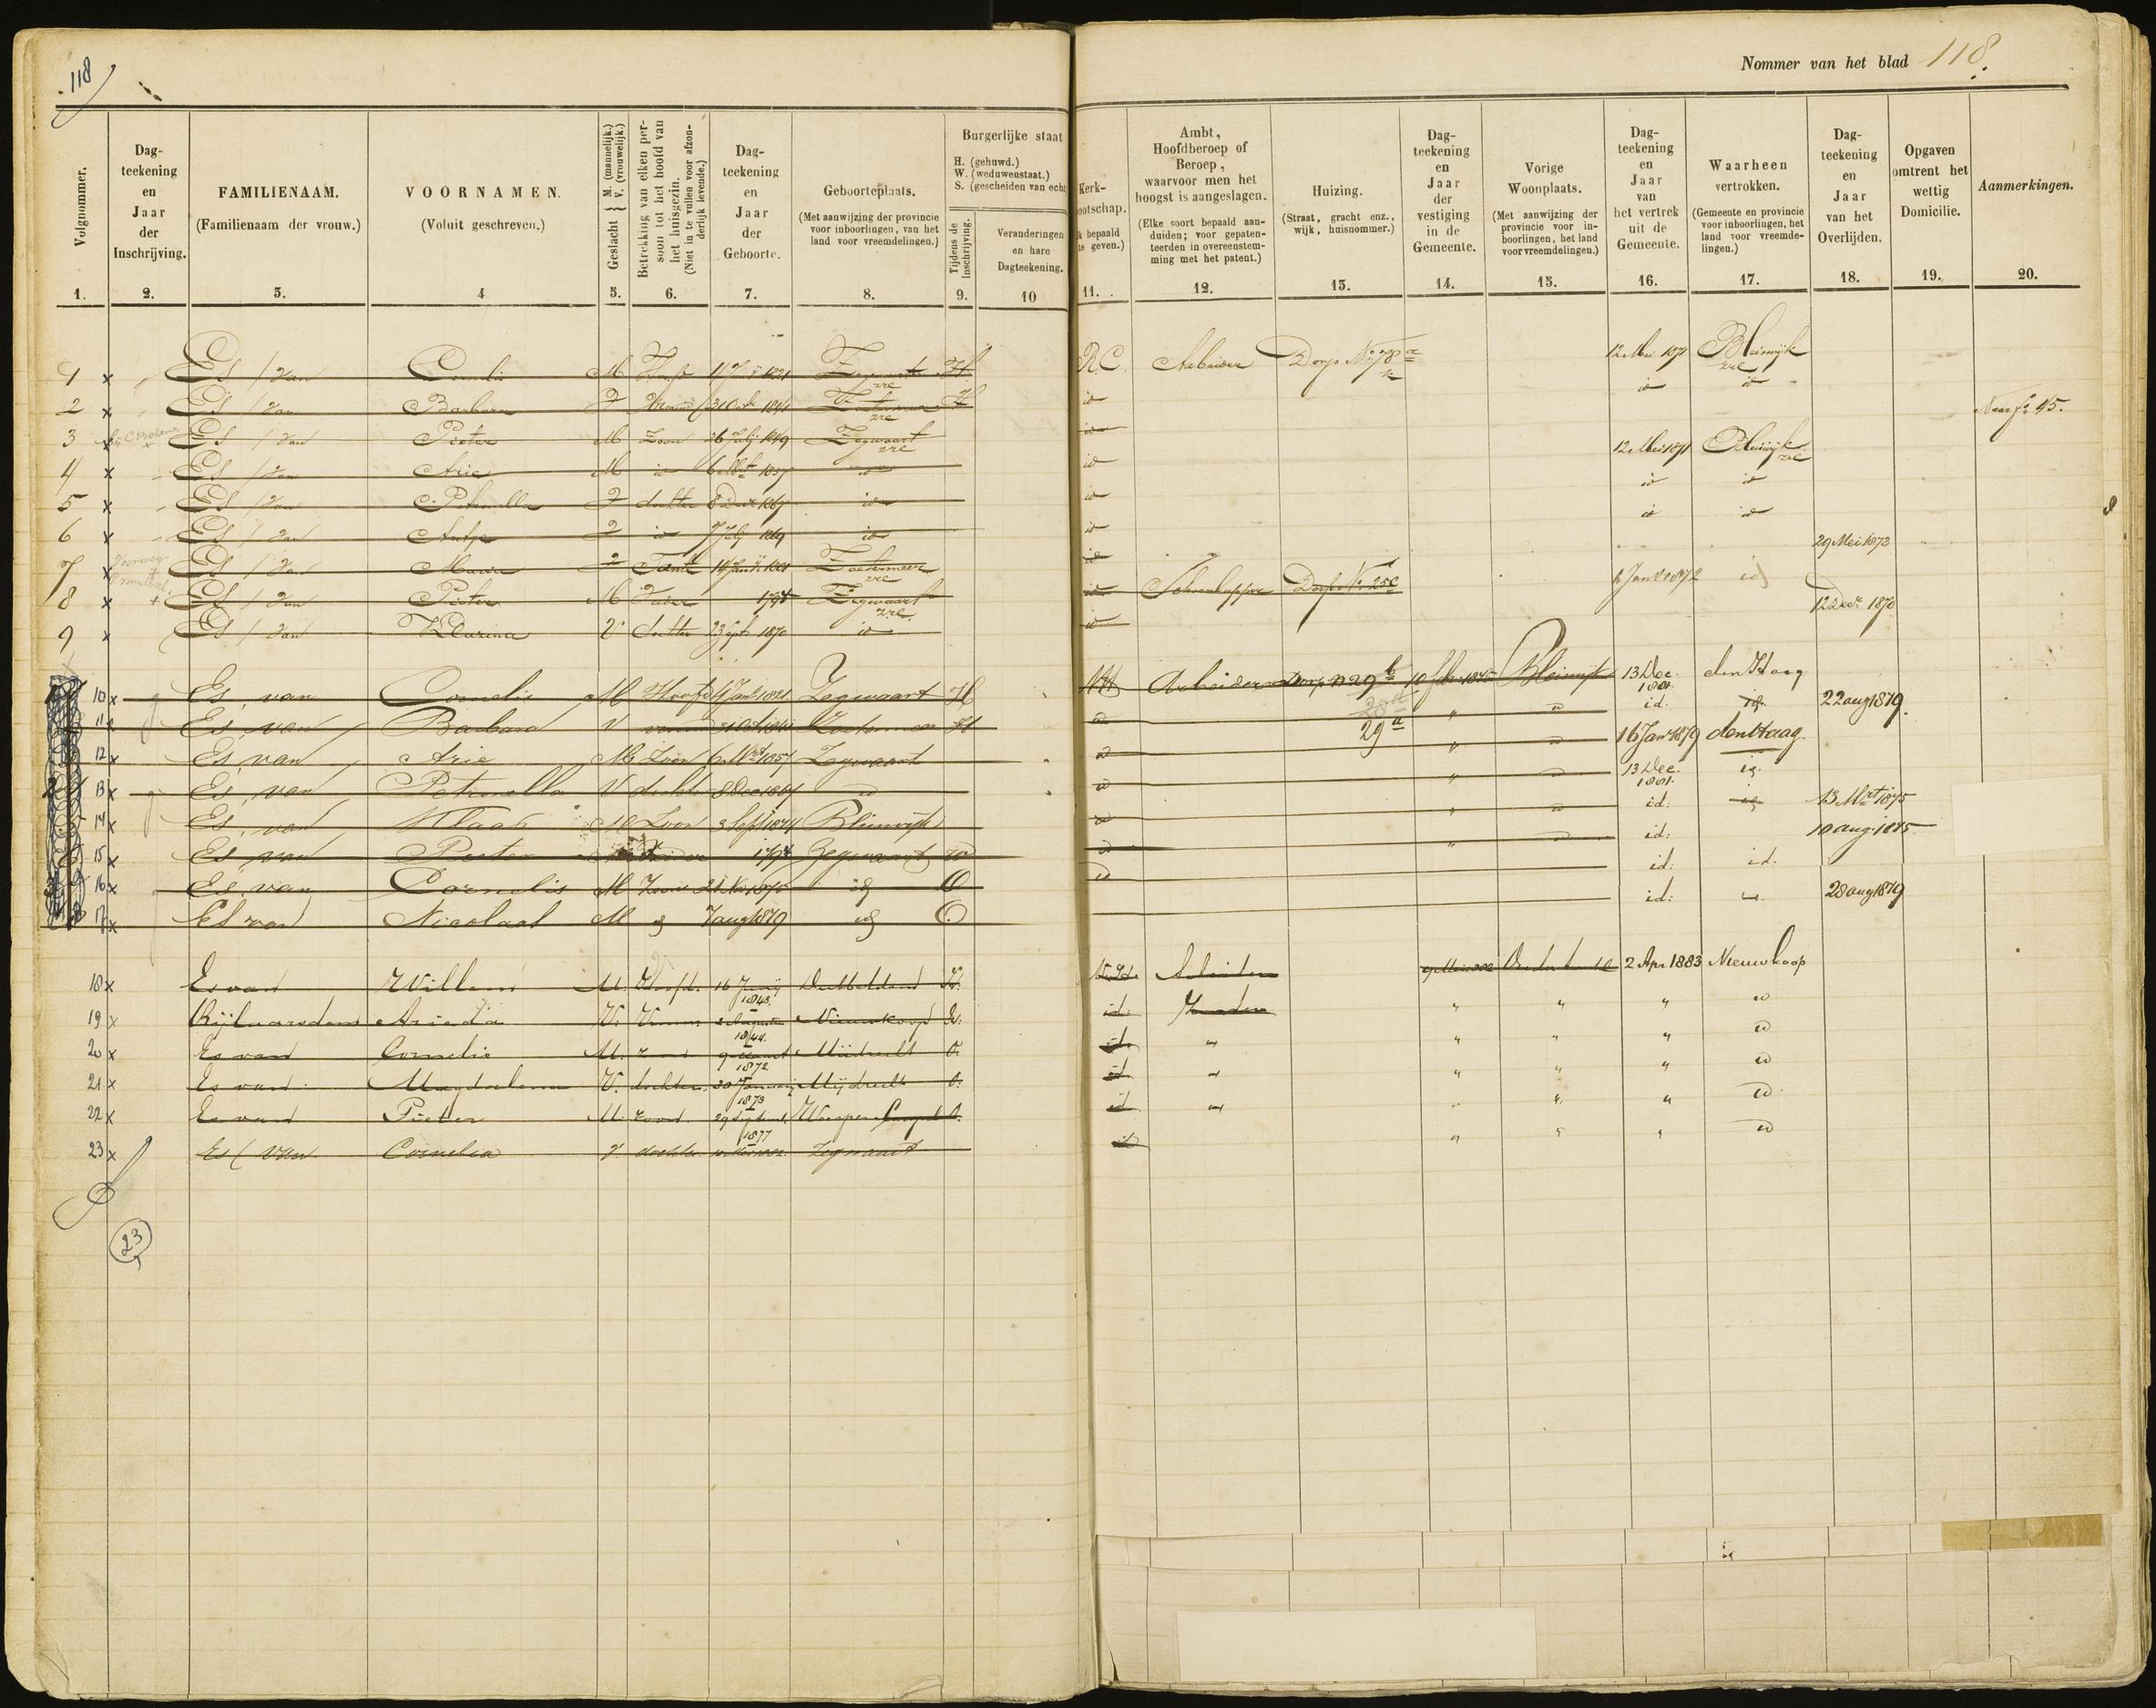 118
Nommer van het blad 118.
Volgnommer.
1.
Dag-
teekening
en
Jaar
der
Inschrijving.
2.
FAMILIENAAM.
(Familienaam der vrouw.)
3.
VOORNAMEN.
(Voluit geschreven.)
4
Geslacht { M. (mannelijk.) V. (vrouwelijk.)
5.
Betrekking van elken per-
soon tot het hoofd van
het huisgezin.
(Niet in te vullen voor afzon-
derlijk levende.)
6.
Dag-
teekening
en
Jaar
der
Geboorte.
7.
Geboorteplaats.
(Met aanwijzing der provincie
voor inboorlingen, van het
land voor vreemdelingen.)
8.
Burgerlijke staat
H. (gehuwd.)
W. (weduwenstaat.)
S. (gescheiden van echt
Tijdens de
inschrijving.
9.
Veranderingen
en hare
Dagteekening.
10
Kerk-
ootschap.
k bepaald
te geven.)
11.
Ambt,
Hoofdberoep of
Beroep,
waarvoor men het
hoogst is aangeslagen.
(Elke soort bepaald aan-
duiden; voor gepaten-
teerden in overeenstem-
ming met het patent.)
12.
Huizing.
(Straat, gracht enz.,
wijk, huisnommer.)
13.
Dag-
teekening
en
Jaar
der
vestiging
in de
Gemeente.
14.
Vorige
Woonplaats.
(Met aanwijzing der
provincie voor in-
boorlingen, het land
voor vreemdelingen.)
15.
Dag-
teekening
en
Jaar
van
het vertrek
uit de
Gemeente.
16.
Waarheen
vertrokken.
(Gemeente en provincie
voor inboorlingen, het
land voor vreemde-
lingen.)
17.
Dag-
teekening
en
Jaar
van het
Overlijden.
18.
Opgaven
omtrent het
wettig
Domicilie.
19.
Aanmerkingen.
20.
1 x Es / van Cornelis M Hoofd 1821 Zegwaart zre H R.C. Arbeider Dorp No 78 a 12 Mei 1871 Bleiswijk zre
2 x Es / van Barbara Vrouw 31 Octr 1841 zre H id id id
3 x Es / van Pieter M Zoon 26 Julij 1849 Zegwaart zre id Naar fo 45.
4 x Es / van Arie M id 6 Mrt 1857 id id 12 Mei 1871 Bleiswijk zre
5 x Es / van Petronella dochter 8 Decr 1867 id id id id
6 x Es / van Antje id 7 Julij 1869 id id id id
7 x Es / van Maria Tante Zoetermeer zre id 29 Mei 1873
8 x Es / van Pieter M Vader 1794 Zegwaart zre id Dorp No 25c 1872 id
9 x Es / van Klazina V dochter 23 Sept 1870 id id 12 Decr 1870
10 x Es, van Cornelis M Hoofd 1821 Zegwaart H Arbeider Dorp n 29 b 1875 Bleiswijk 13 Dec. 1881. den Haag
28 a
11 x Es, van Barbara V vrouw Zoetermeer H id 29 a " id id. id. 22 aug 1879.
12 x Es, van Arie M Zoon 6 Mrt 1857 Zegwaart id " id 16 Jan 1879 den Haag
13 x Es, van Petronella V dochter 8 Dec 1867 id id " id 13 Dec. 1881. id.
14 x Es, van Klaas M Zoon 3 Sept 1874 Bleiswijk id " id id: id 13 Mrt 1875
15 x Es van Pieter 1794 Zegwaart W id " id id: 10 aug. 1875
16 x Es, van Cornelis M Zoon 21 Nov 1875 id O id id: id.
17 x Es van Nicolaas M id 7 aug 1879 id O. id: 28 aug 1879
18 x Es van Willem M. Hoofd. 16 Junij 1843. Dubbeldam H. Arbeider 2 Apr 1883 Nieuwkoop
19 x Rijlaarsdam Arieda V. Vrouw 2 Augustus 1844. Nieuwkoop H. id. " " " id
20 x Es van Cornelis M. zoon 9 Maart 1872 Mijdrecht O. id. " " " " id
21 x Es van Magdalena V. dochter 30 Januarij 1873 Mijdrecht O. id. " " " " id
22 x Es van Pieter M. zoon 29 1877 O. id " " " " id
23 x Es (van Cornelia V. dochter Zegwaart id " " " id
23